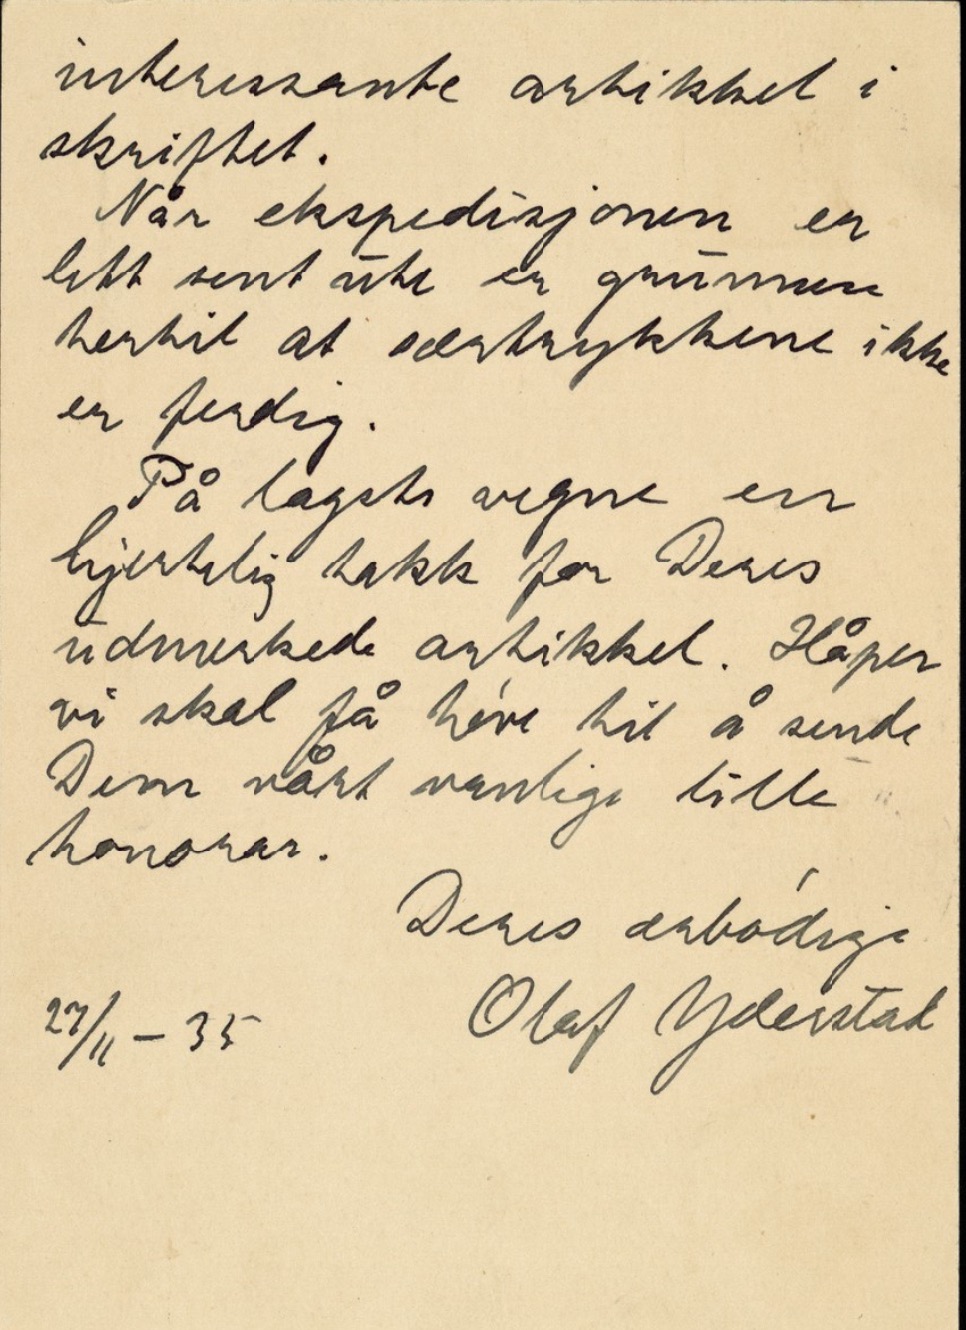 interessante artikkel i
skriftet.
Når ekspedisjonen er
litt sent ute er grunnen
hertil at særtrykkene ikke
er ferdig.
På lagets vegne en
hjertelig takk for Deres
udmerkede artikkel. Håper
vi skal få höve til å sende
Dem vårt vanlige lille
honorar.
Deres ærbödige
Olaf Yderstad
27/11 - 35